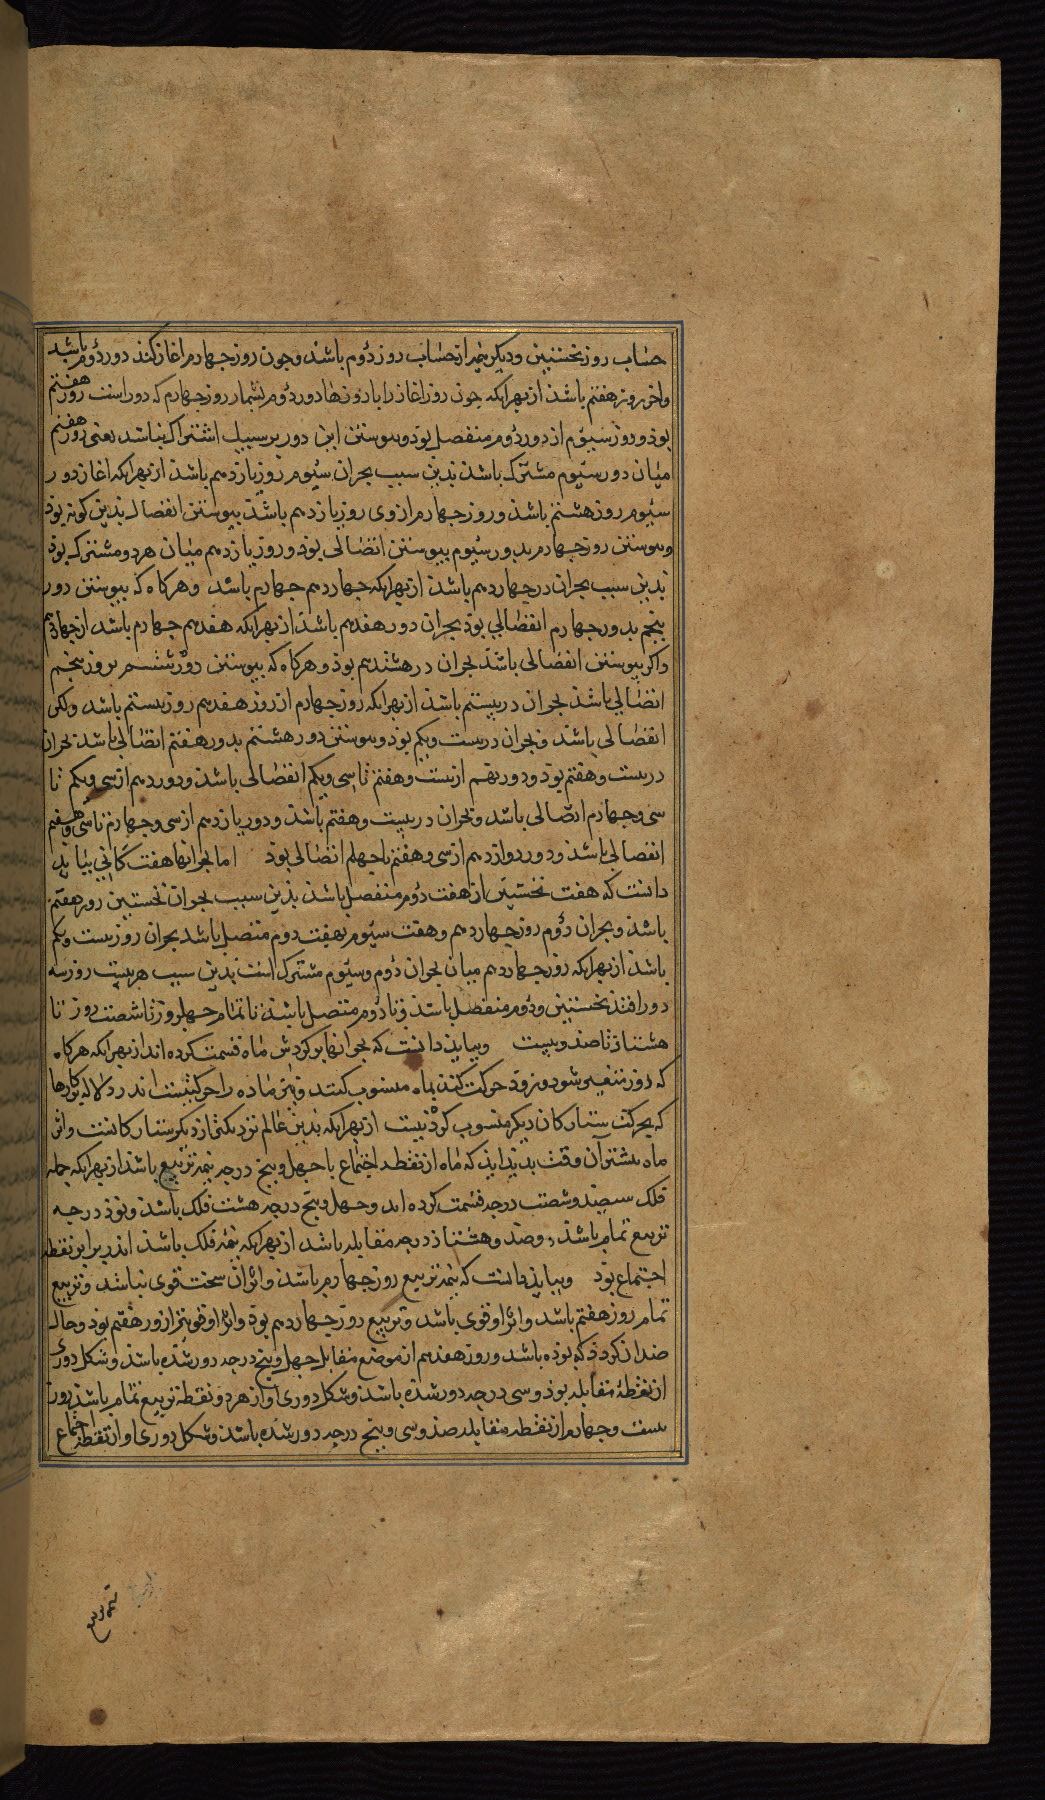 حساب روز نخستین و دیکر بهر از حساب روز دوم باشد و جون روز جهارم اغاز کند دور دوم باشد
و اخر روز هفتم باشد از بهر انکه جون روز اغاز را با روزها دور دوم بشمار روز جهارم که دور است روز هفتم
بوذ و دور سیوم از دور دوم منفصل بوذ و بیوستن این دور بر سبیل اشتراک نباشد یعنی روز هفتم
میان دور سیوم مشترک باشد بدین سبب بحران سیوم روز یازدهم باشد از بهر انکه اغاز دور
سیوم روز هشتم باشد و روز جهارم از وی روز یازدهم باشد بیوستن انفصال بدین کونه بوذ
و بیوستن روز جهارم بدور سیوم بیوستن اتصالی بوذ و روز یازدهم میان هر دو مشترک بوذ
بدین سبب بحران در جهاردهم باشد از بهر انکه جهاردهم جهارم باشد و هرکاه که بیوستن دور
بنجم بدور جهارم انفصالی بوذ بحران دور هفدهم باشد از بهر انکه هفدهم جهارم باشد از جهاردهم
و اکر بیوستن انفصالی باشد بحران در هشتدهم بوذ و هرکاه که بیوستن دور ششم بروز بنجم
اتصالی باشد بحران در بیستم باشد از بهر انکه روز جهارم از روز هفدهم روز بیستم باشد و لکن
انفصالی باشد و بحران در بیست و یکم بوذ و بیوستن دور هشتم بدور هفتم اتصالی باشد بحران
در بیست و هفتم بوذ و دور نهم از بیست و هفتم تا سی و یکم انفصالی باشد و دور دهم از سی و یکم تا
سی و جهارم اتصالی باشد و بحران در بیست و هفتم باشد و دور یازدهم از سی و جهارم تا سی و هفتم
انفصالی باشد و دور دوازدهم از سی و هفتم تا جهلم اتصالی بوذ اما بحرانها هفت کانی بباید
دانست که هفت نخستین از هفت دوم منفصل باشد بدین سبب بحران نخستین روز هفتم
باشد و بحران دوم روز جهاردهم و هفت سیوم بهفت دوم متصل باشد بحران روز بیست و یکم
باشد از بهر انکه روز جهاردهم میان بحران دوم و سیوم مشترک است بدین سبب هر بیست روز سه
دور افتد نخستین و دوم منفصل باشد و تا دوم متصل باشد تا تمام جهل روز تا شصت روز تا
هشتاد تا صد و بیست و بباید دانست که بحرانها بر کردش ماه قسمت کرده اند از بهر انکه هرکاه
که زود متغیر شود و زود حرکت کند بماه منسوب کنند و بهر ماده را حرکتیست اندر دلالة کارها
که بحرکت ستارکان دیکر منسوب کرد نیست از بهر انکه بدین عالم نزدیکتر از دیکر ستارکانست و اثر
ماه بیشتر آن وقت بدید اید که ماه از نقطه اجتماع با جهل و بنج درجه نیمه تربیع باشد از بهر انکه جمله
فلک سیصد و شصت درجه قسمت کرده اند و جهل و بنج درجه هشت فلک باشد و نوذ درجه
تربیع تمام باشد و صد و هشتاذ درجه مقابله باشد از بهر انکه نیمه فلک باشد اندر برابر نقطه
اجتماع بوذ و بباید دانست که نیمه تربیع روز جهارم باشد و اثر ان سخت قوی نباشد و تربیع
تمام روز هفتم باشد و اثر او قوی باشد و تربیع روز جهاردهم بوذ و اثر او قوی تر از روز هفتم بوذ و حال
ضد ان کردد که بوذه باشد و روز هفدهم از موضع مقابل جهل و بنج درجه دور شده باشد و شکل دوری
از نقطه مقابله بوذ و سی درجه دور شده باشد و شکل دوری او از هر دو نقطه تربیع تمام باشد روز
بیست و جهارم از نقطه مقابله صد و سی و بنج درجه دور شده باشد و شکل دوری او از نقطه اجتماع
نیمه تربیع